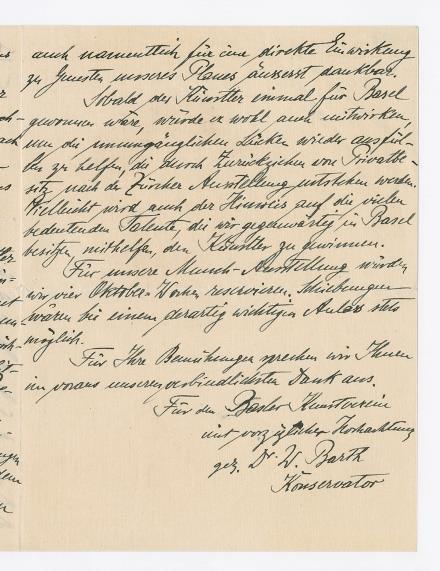 auch namentlich für eine direkte Einwirkung
zu Gunsten unseres Planes äusserst dankbar.
Sobald der Künstler einmal für Basel
gewonnen wäre, würde er wohl auch mitwirken,
um die unumgänglichen Lücken wieder ausfül-
len zu helfen, die durch Zurückziehen von Privatbe-
sitz nach der Zürcher Ausstellung entstehen werden.
Vielleicht wird auch der Hinweis auf die vielen
bedeutenden Talente, die wir gegenwärtig in Basel
besitzen mithelfen, den Künstler zu gewinnen.
Für unsere Munch-Ausstellung würden
wir vier Oktober-Wochen reservieren. Schiebungen
wären bei einem derartig wichtigen Anlass stets
möglich.
Für Ihre Bemühungen sprechen wir Ihnen
im voraus unseren verbindlichsten Dank aus.
Für den Basler Kunstverein
mit vorzüglicher Hochachtung
gez. Dr. W. Barth
Konservator